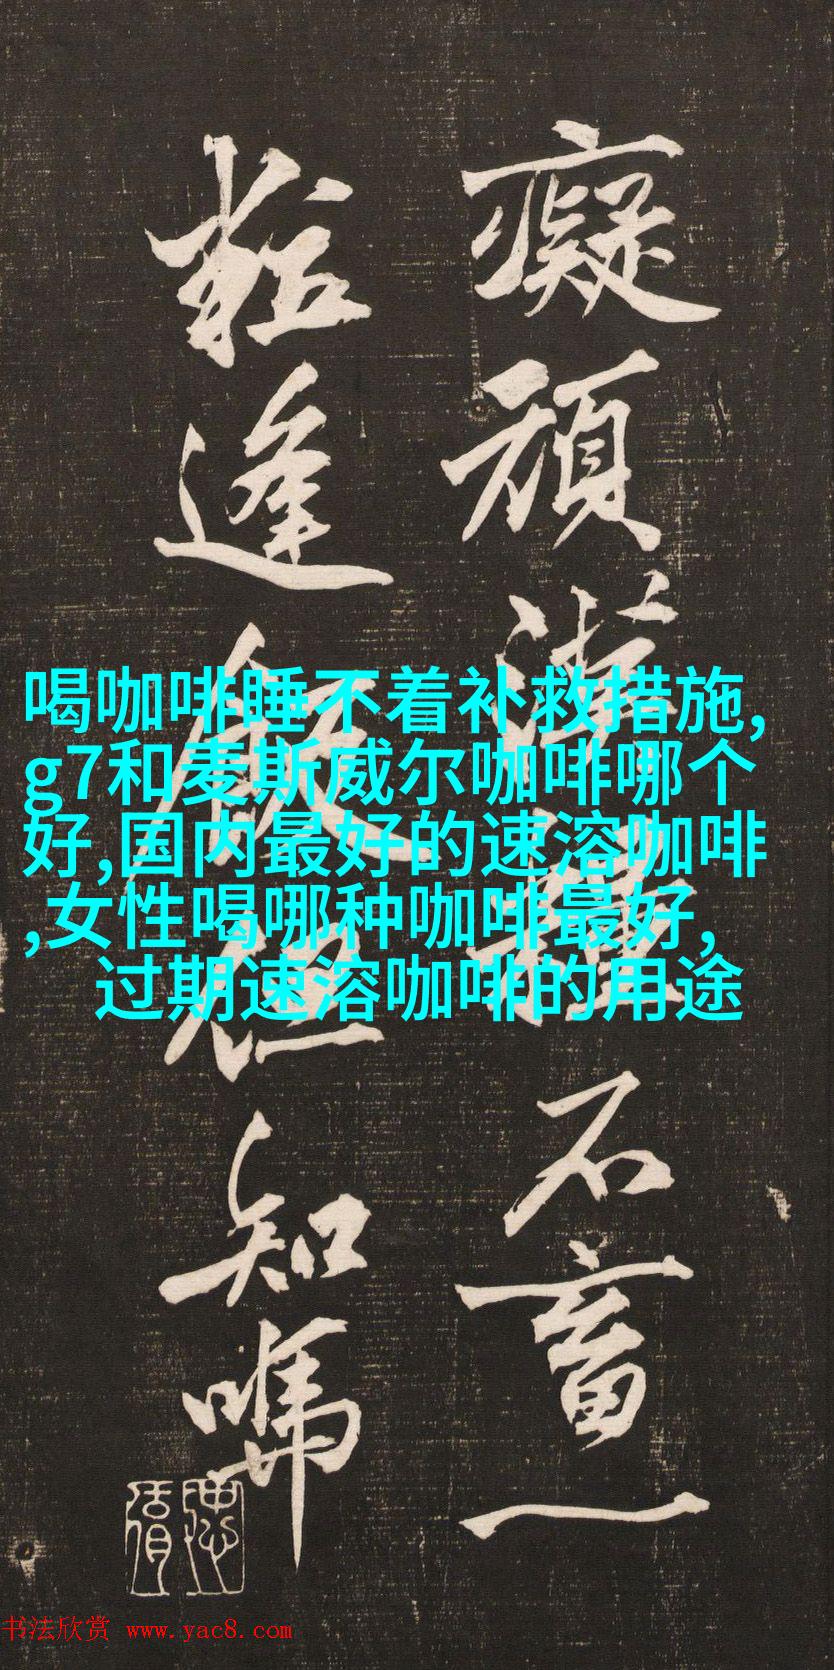 癡頑漢
石畜一
粒逢飯但知嗎
喝咖啡睡不着补救措施,
g7和麦斯威尔咖啡哪个
好,国内最好的速溶咖啡
,女性喝哪种咖啡最好,
过期速溶咖啡的用途
书法欣赏 www.yac8.com